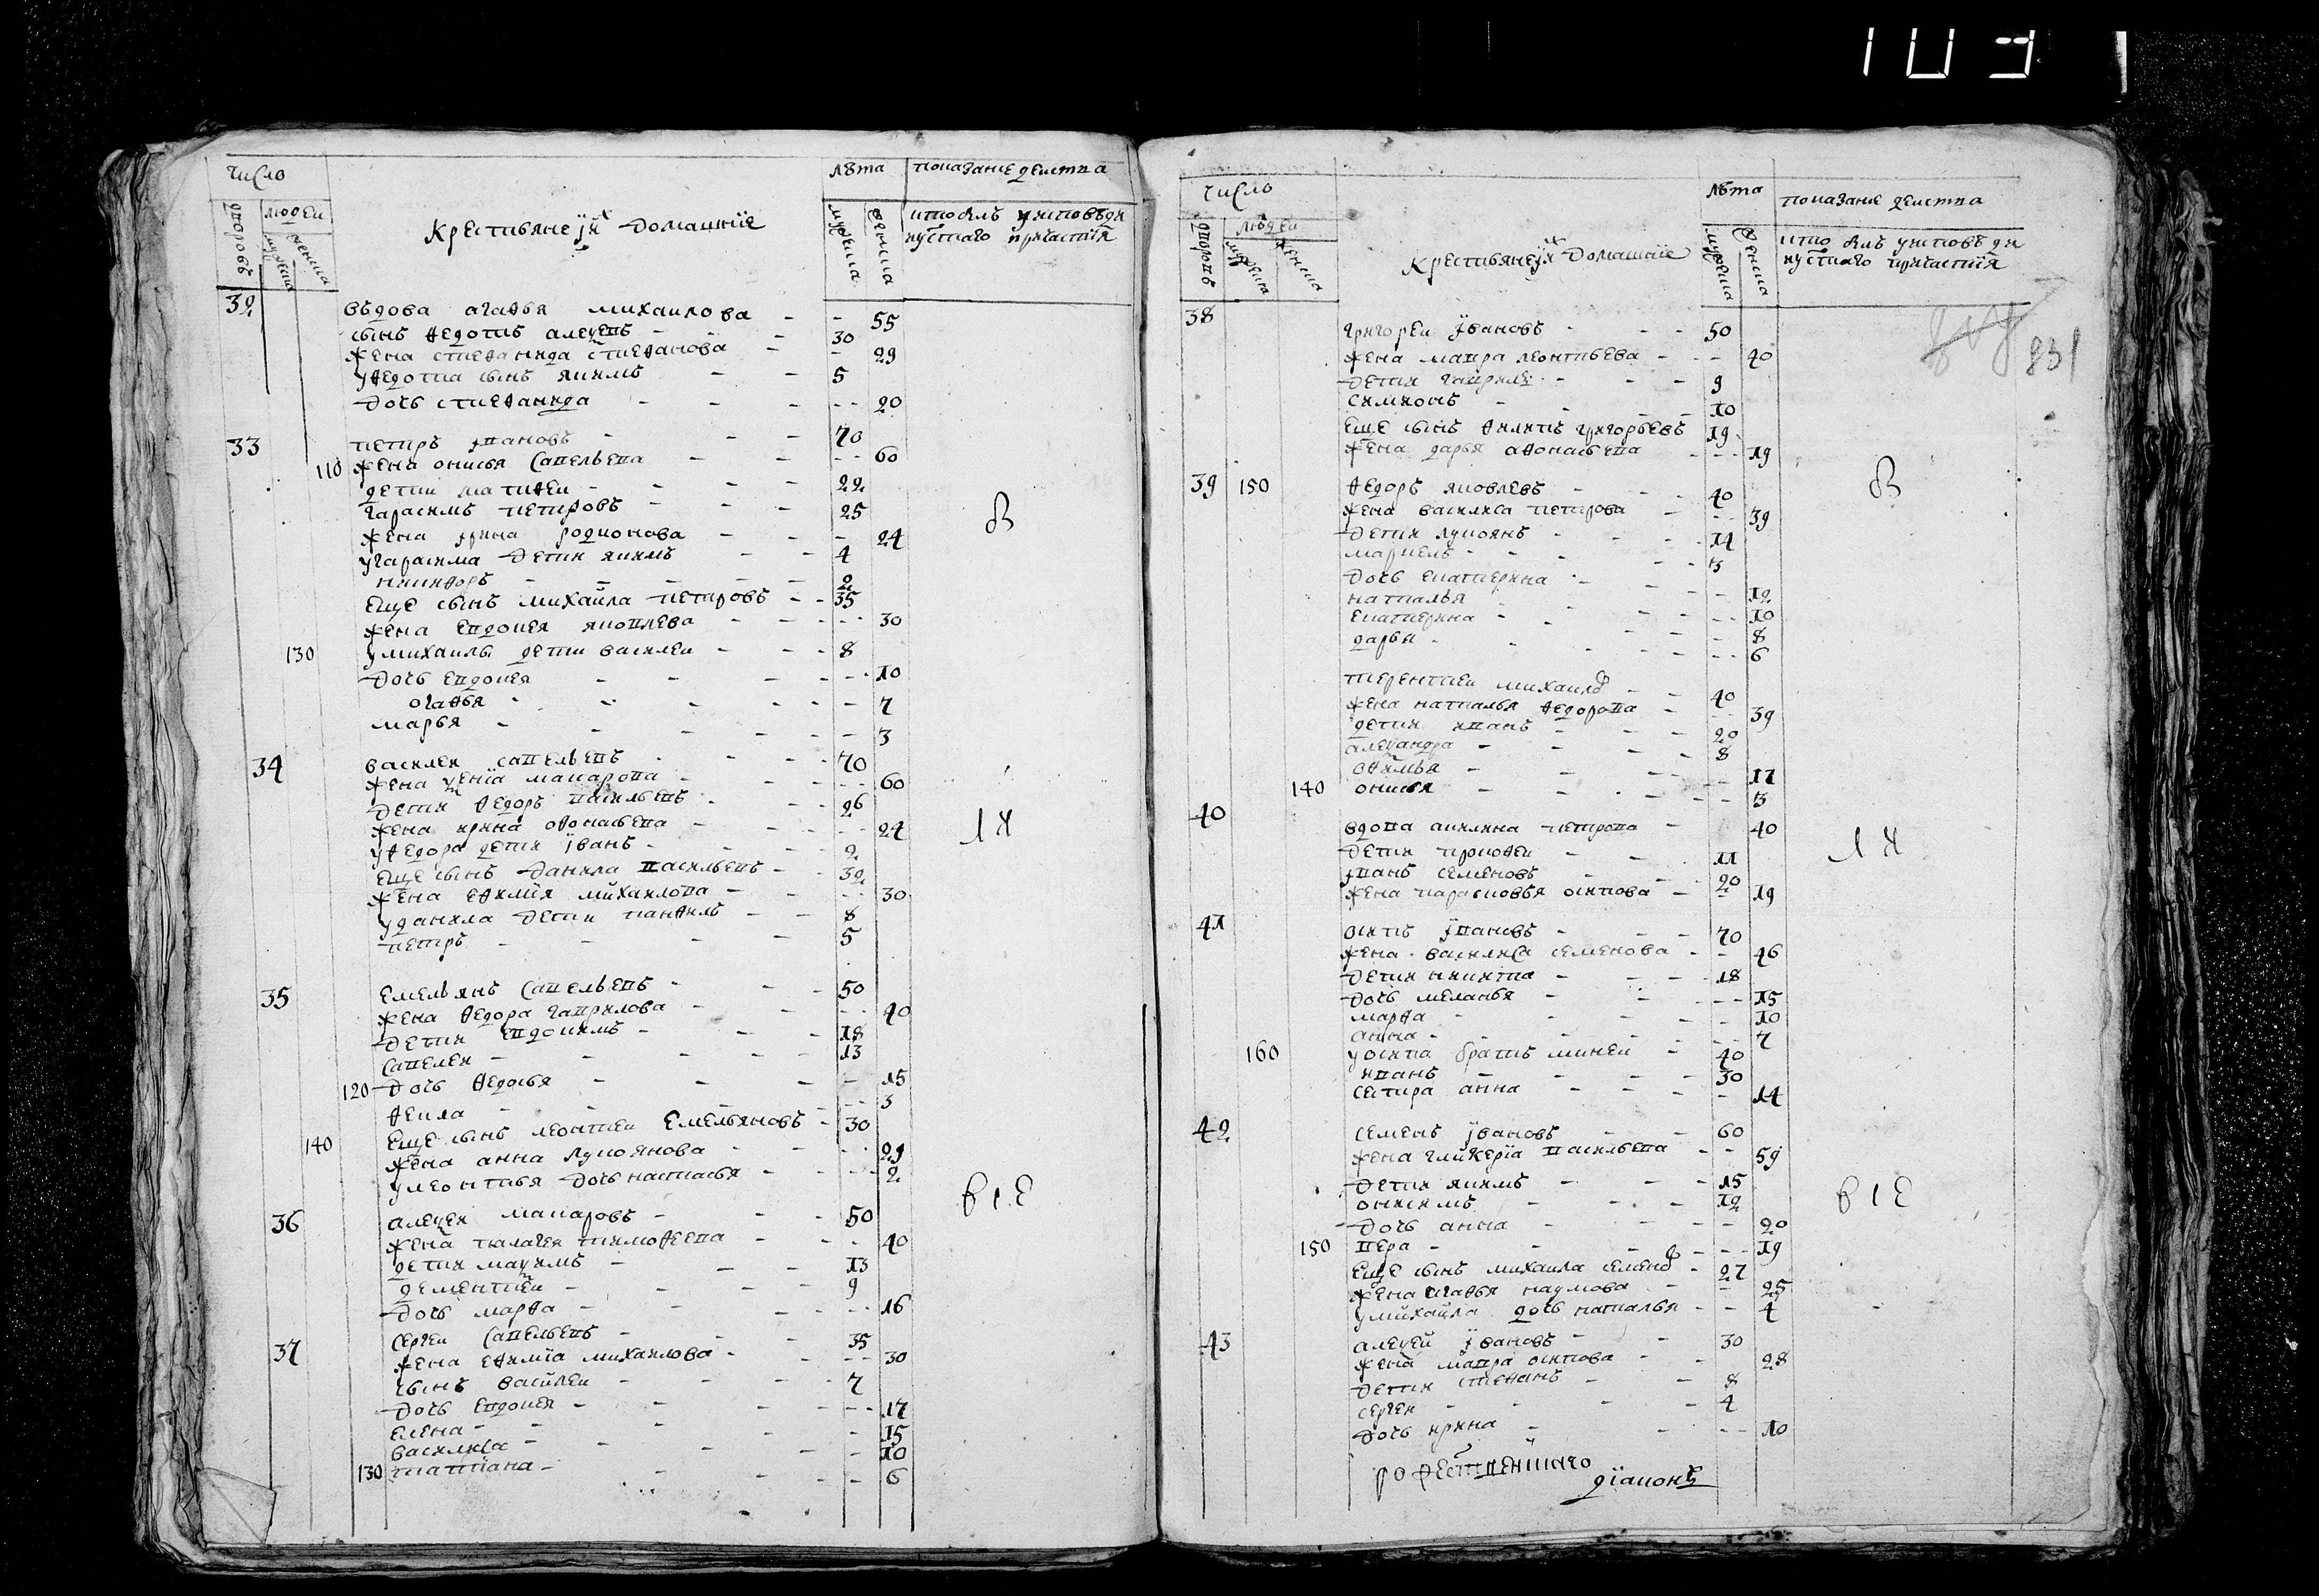 103
число
лѣта показание действа
дворовъ людей
мужеска женска
Крестьяне ихъ домашние
мужеска женска
кто былъ у исповѣди
и у святаго причастия
32 вѣдова агафья михаилова - - 55
сынъ федотъ алеѯевъ - - 30
жена стефанида стефанова - - 29
у федота сынъ якимъ - - 5
дочь стефанида - - - 20
33 петръ ивановъ - - - 70
110 жена онисья савельева - - - 60
дети матфеи - - - 22
гарасимъ петровъ - - - 25
жена ирина родионова - - - 24
у гарасима дети якимъ - - 4
никифоръ - - - - 2
еще сынъ михаила петровъ - - 35
жена евдокея яковлева - - - 30
130 у михаилы дети василеи - - - 8
дочь евдокея - - - - 10
огафья - - - - 7
марья - - - - 3
34 василеи савельевъ - - - 70
жена ѯения макарова - - - 60
дети федоръ васильевъ - - - 26
жена ирина офонасьева - - - 24
у федора дети иванъ - - - 2
еще сынъ данила васильевъ - - 32
жена ефимия михаилова - - - 30
у данила дети панфилъ - - 8
петръ - - - - 5
35 емельянъ савельевъ - - - 50
жена федора гаврилова - - - 40
дети евдокимъ - - - 18
савелеи - - - - 13
120 дочь федосья - - - 15
фекла - - - - 3
140 еще сынъ леонтеи емельяновъ - 30
жена анна лукоянова - - - 29
у леонтья дочь наталья - - - 2
36 алеѯеи макаровъ - - - 50
жена палагея тимофеева - - - 40
дети маѯимъ - - - 13
дементеи - - - 9
дочь марфа - - - - 16
37 сергеи савельевъ - - - 35
жена ефимиа михаилова - - - 30
сынъ василеи - - - 7
дочь евдокея - - - - 17
елена - - - - 15
василиса - - - - 10
130 татиана - - - - 6
В
Л И
В І Е
число
лѣта показание действа
дворовъ людей
мужеска женска
Крестьяне ихъ домашние
мужеска женска
кто былъ у исповѣди
и у святаго причастия
231
38 григореи ивановъ - - - 50
жена мавра леонтьева - - - 40
дети гаврила - - - 9
симионъ - - - 10
еще сынъ филипъ григорьевъ 19
жена дарья афонасьева - - - 19
39 150 федоръ яковлевъ - - - 40
жена василиса петрова - - - 39
дети лукоянъ - - - 14
маркелъ - - - 5
дочь екатерина - - - 12
наталья - - - 10
екатерина - - - 8
дарья - - - 6
терентеи михаиловъ - - 40
жена наталья федорова - - - 39
дети иванъ - - - 20
алеѯандра - - - 8
офимья - - - 17
140 онисья - - - 5
40 вдова акилина петрова - 40
дети прокофеи - - - 11
иванъ семеновъ - - 20
жена парасковья осипова - - 19
41 осипъ ивановъ - - - 70
жена василиса семенова - - 46
дети никита - - - 18
дочь меланья - - - 15
марфа - - - 10
анна - - - 7
160 у осипа братъ минеи - 40
иванъ - - - 30
сестра анна - - - 14
42 семенъ ивановъ - - 60
жена гликериа васильева - - 59
дети якимъ - - - 15
онисимъ - - - 12
дочь анна - - - 20
150 вера - - - 19
еще сынъ михаила семеновъ - 27
жена агафья наумова - - 25
у михаила дочь наталья - - 4
43 алеѯеи ивановъ - - 30
жена мавра осипова - - 28
дети стефанъ - - 8
сергеи - - - 4
дочь ирина - - - 10
В
Л И
В І Е
рождественскаго
диаконъ